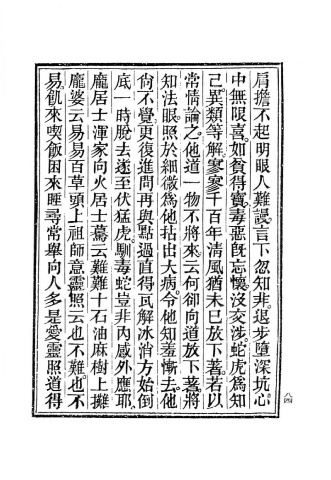 肩擔不起明眼人難謾言下忽知非退步墮深坑心
中無限喜如貧得寶毒惡既忘懷沒交涉蛇虎為知
己異類等解寥寥千百年清風猶未已放下著若以
常情論之他道一物不將來云何卻向道放下著將
知法眼照於細微為他拈出大病令他知羞慚去他
尚不覺更復進問再與點過直得瓦解冰消方始倒
底一時脫去遂至伏猛虎馴毒蛇豈非內感外應耶
龐居士渾家向火居士驀云難難十石油麻樹上攤
龐婆云易易百草頭上祖師意靈照云也不難也不
易飢來喫飯困來睡尋常舉向人多是愛靈照道得
八四